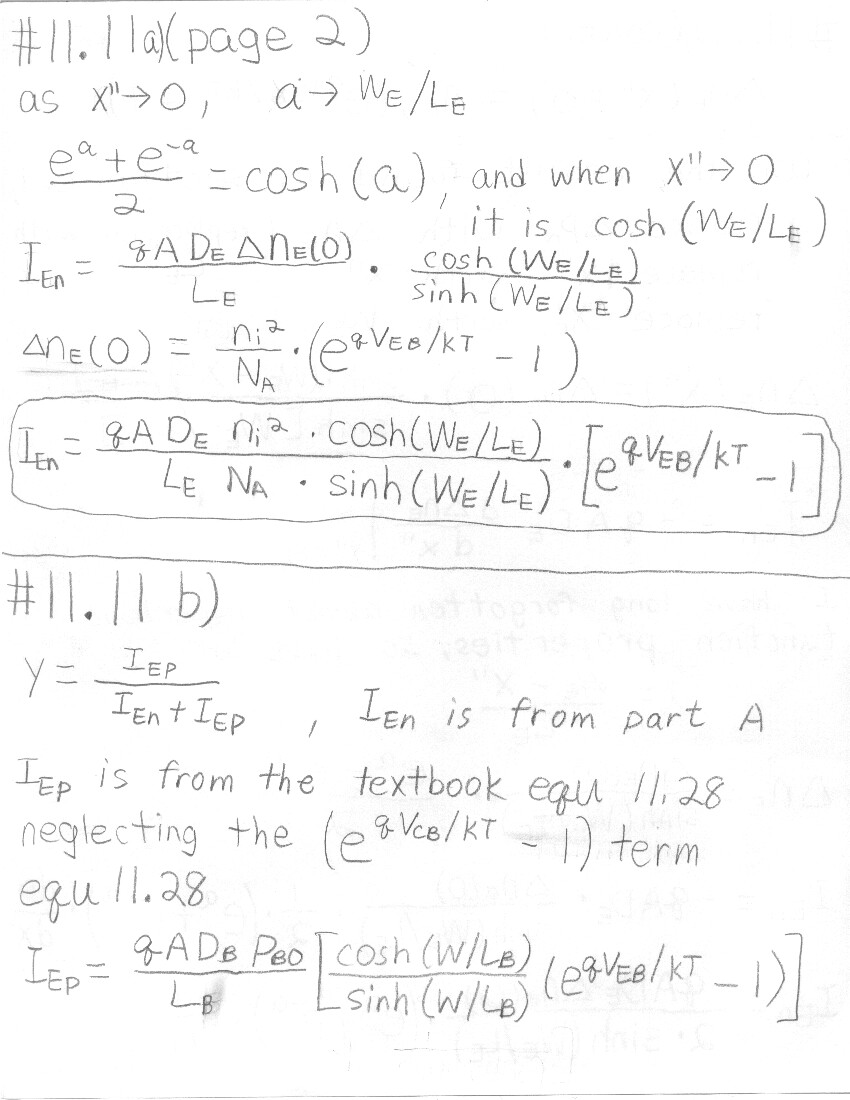 #11.11a) (page 2)
as x"→0, a→ W_E/L_E
(e^a + e^-a)/2 = cosh(a), and when x"→0
it is cosh(W_E/L_E)
I_En = (qAD_E Δn_E(0))/L_E · cosh(W_E/L_E)/sinh(W_E/L_E)
Δn_E(0) = n_i²/N_A · (e^(qV_EB/kT) - 1)
I_En = (qA D_E n_i² · cosh(W_E/L_E))/(L_E N_A · sinh(W_E/L_E)) · [e^(qV_EB/kT) - 1]
#11.11 b)
γ = I_EP/(I_En + I_EP), I_En is from part A
I_EP is from the textbook equ 11.28
neglecting the (e^(qV_CB/kT) - 1) term
equ 11.28
I_EP = (qAD_B P_B0)/L_B [cosh(W/L_B)/sinh(W/L_B) (e^(qV_EB/kT) - 1)]